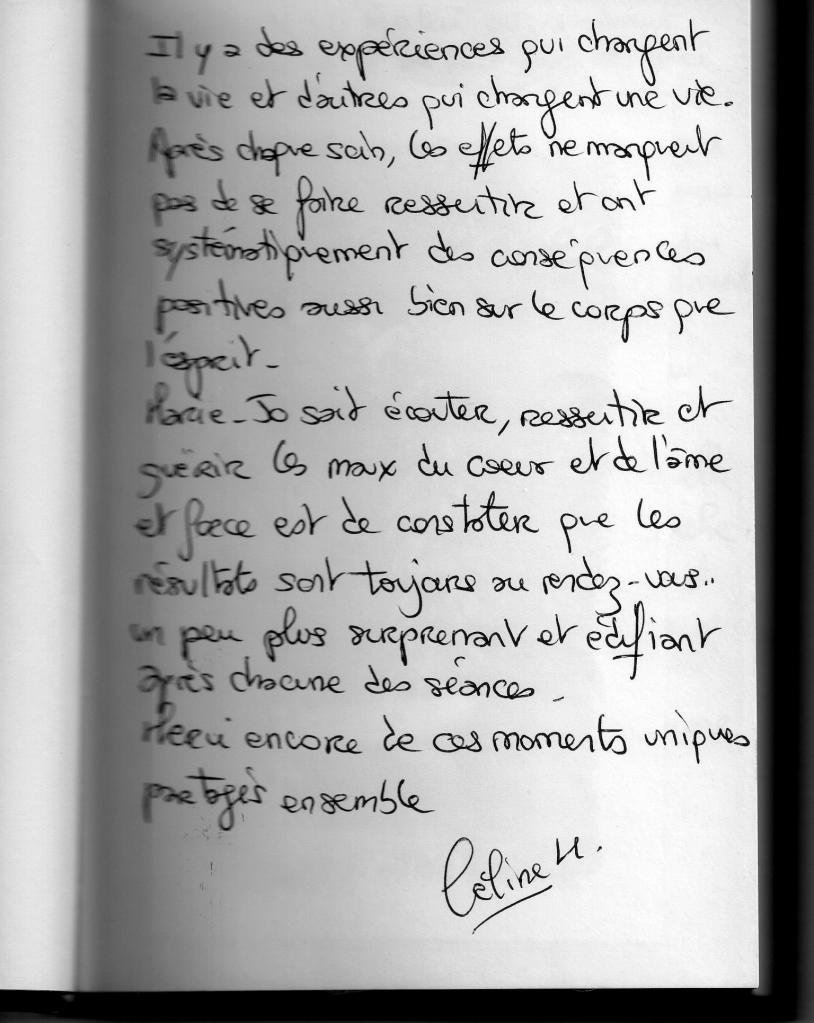 Il y a des expériences qui changent
la vie et d'autres qui changent une vie.
Après chaque soin, les effets ne manquent
pas de se faire ressentir et ont
systématiquement des conséquences
positives aussi bien sur le corps que
l'esprit.
Marie-Jo sait écouter, ressentir et
guérir les maux du coeur et de l'âme
et force est de constater que les
résultats sont toujours au rendez-vous..
un peu plus surprenant et édifiant
après chacune des séances.
Merci encore de ces moments uniques
partagés ensemble
Céline H.